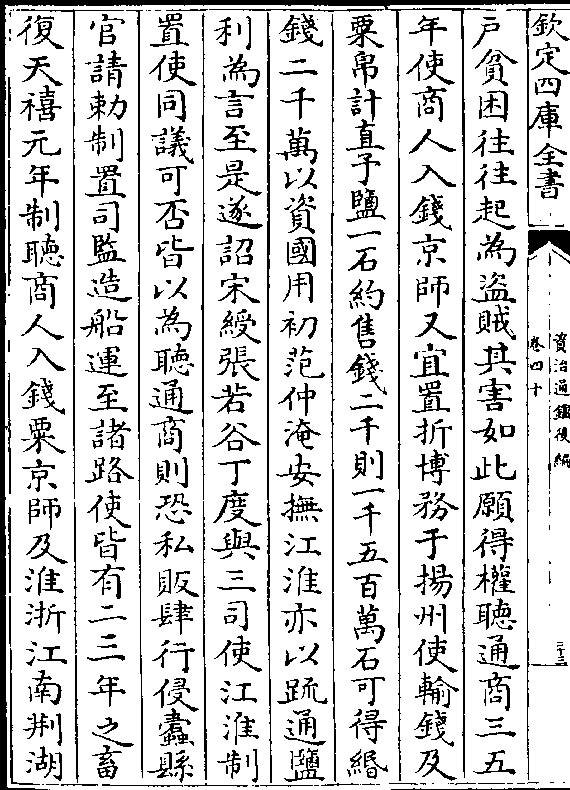 欽定四庫全書
資治通鑑後編
卷四十
三十三
戶貧困往往起為盜賊其害如此願得權聽通商三五
年使商人入錢京師又宜置折博務于揚州使輸錢及
粟帛計直予鹽一石約售錢二千則一千五百萬石可得緡
錢二千萬以資國用初范仲淹安撫江淮亦以疏通鹽
利為言至是遂詔宋綬張若谷丁度與三司使江淮制
置使同議可否皆以為聽通商則恐私販肆行侵蠹縣
官請勅制置司監造船運至諸路使皆有二三年之畜
復天禧元年制聽商人入錢粟京師及淮浙江南荆湖